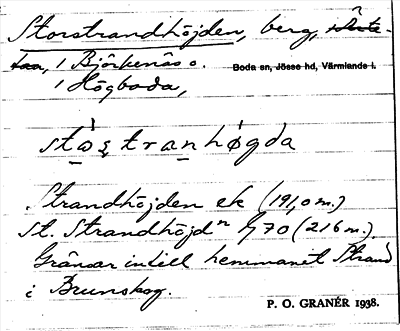 Storstrandhöjden, berg,
i Björkenäs o.
Boda sn, Jösse hd, Värmlands l.
i Högboda,
Strandhöjden ek (191,0 m.)
St. Strandhöjdn 470 (216 m.)
Gränsar intill hemmanet Strand
i Brunskog.
P. O. GRANÉR 1938.